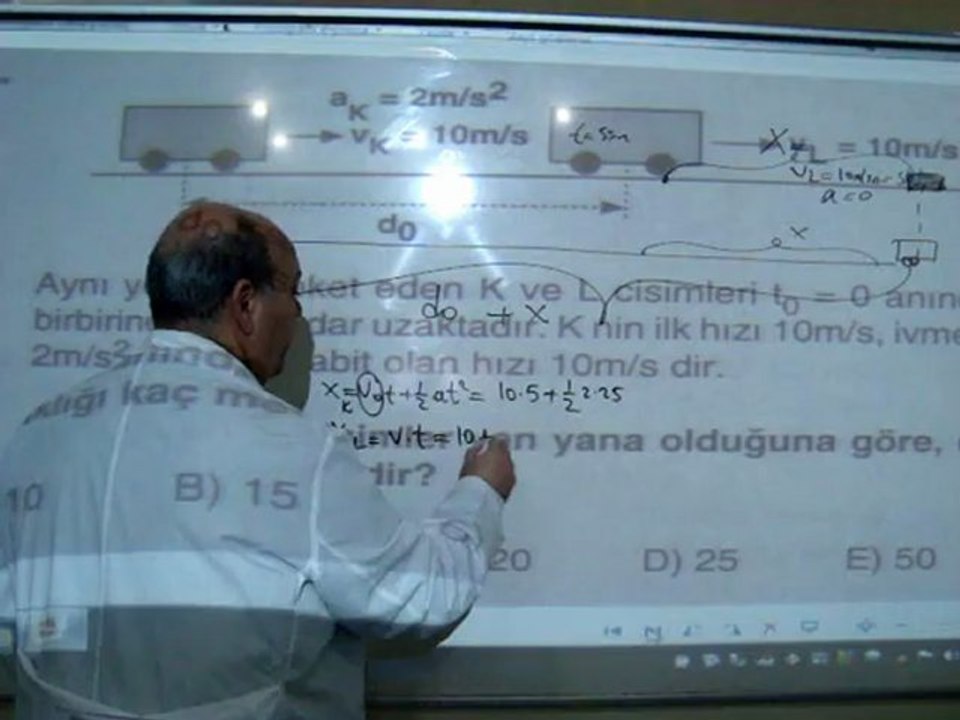 a_K = 2m/s²
v_K = 10m/s
t=5sn
= 10m/s
a=0
d₀
x
Aynı eden K ve L cisimleri t₀ = 0 anın
birbirin dar uzaktadır. K nin ilk hızı 10m/s, ivme
2m/s² abit olan hızı 10m/s dir.
d₀ + x
x_K = v₀t + ½ at² = 10.5 + ½ 2.25
kaç me
= v.t = 10
yana olduğuna göre,
dir?
10 B) 15 20 D) 25 E) 50